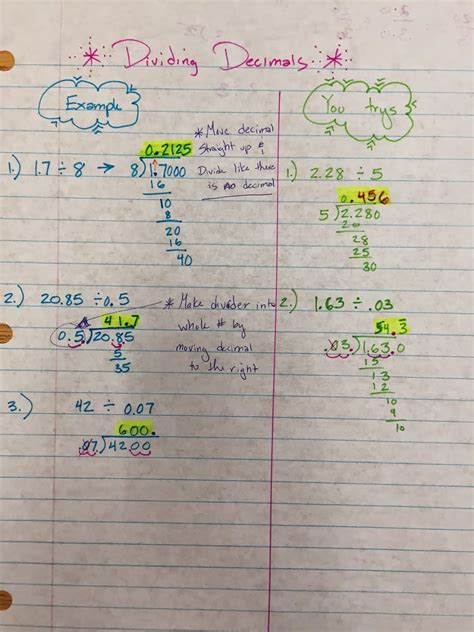 * Dividing Decimals *
Example
1.) 1.7 ÷ 8 →
0.2125
8)1.7000
16
10
8
20
16
40
* Move decimal
straight up &
Divide like there
is no decimal
2.) 20.85 ÷ 0.5
41.7
0.5.)20.85
5
35
* Make divider into
whole # by
moving decimal
to the right
3.) 42 ÷ 0.07
600.
.07)4200
You trys
1.) 2.28 ÷ 5
0.456
5)2.280
20
28
25
30
2.) 1.63 ÷ .03
54.3
.03.)1.63.0
15
13
12
10
9
10